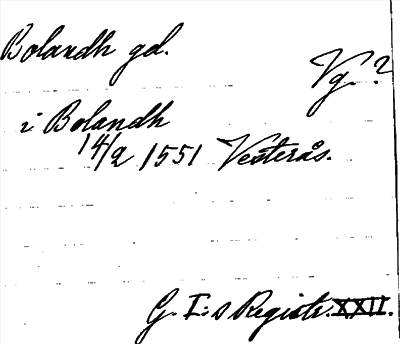 Bolandh gd.
Vg. ?
i Bolandh
14/2 1551 Vesterås.
G. I:s Registr. XXII.